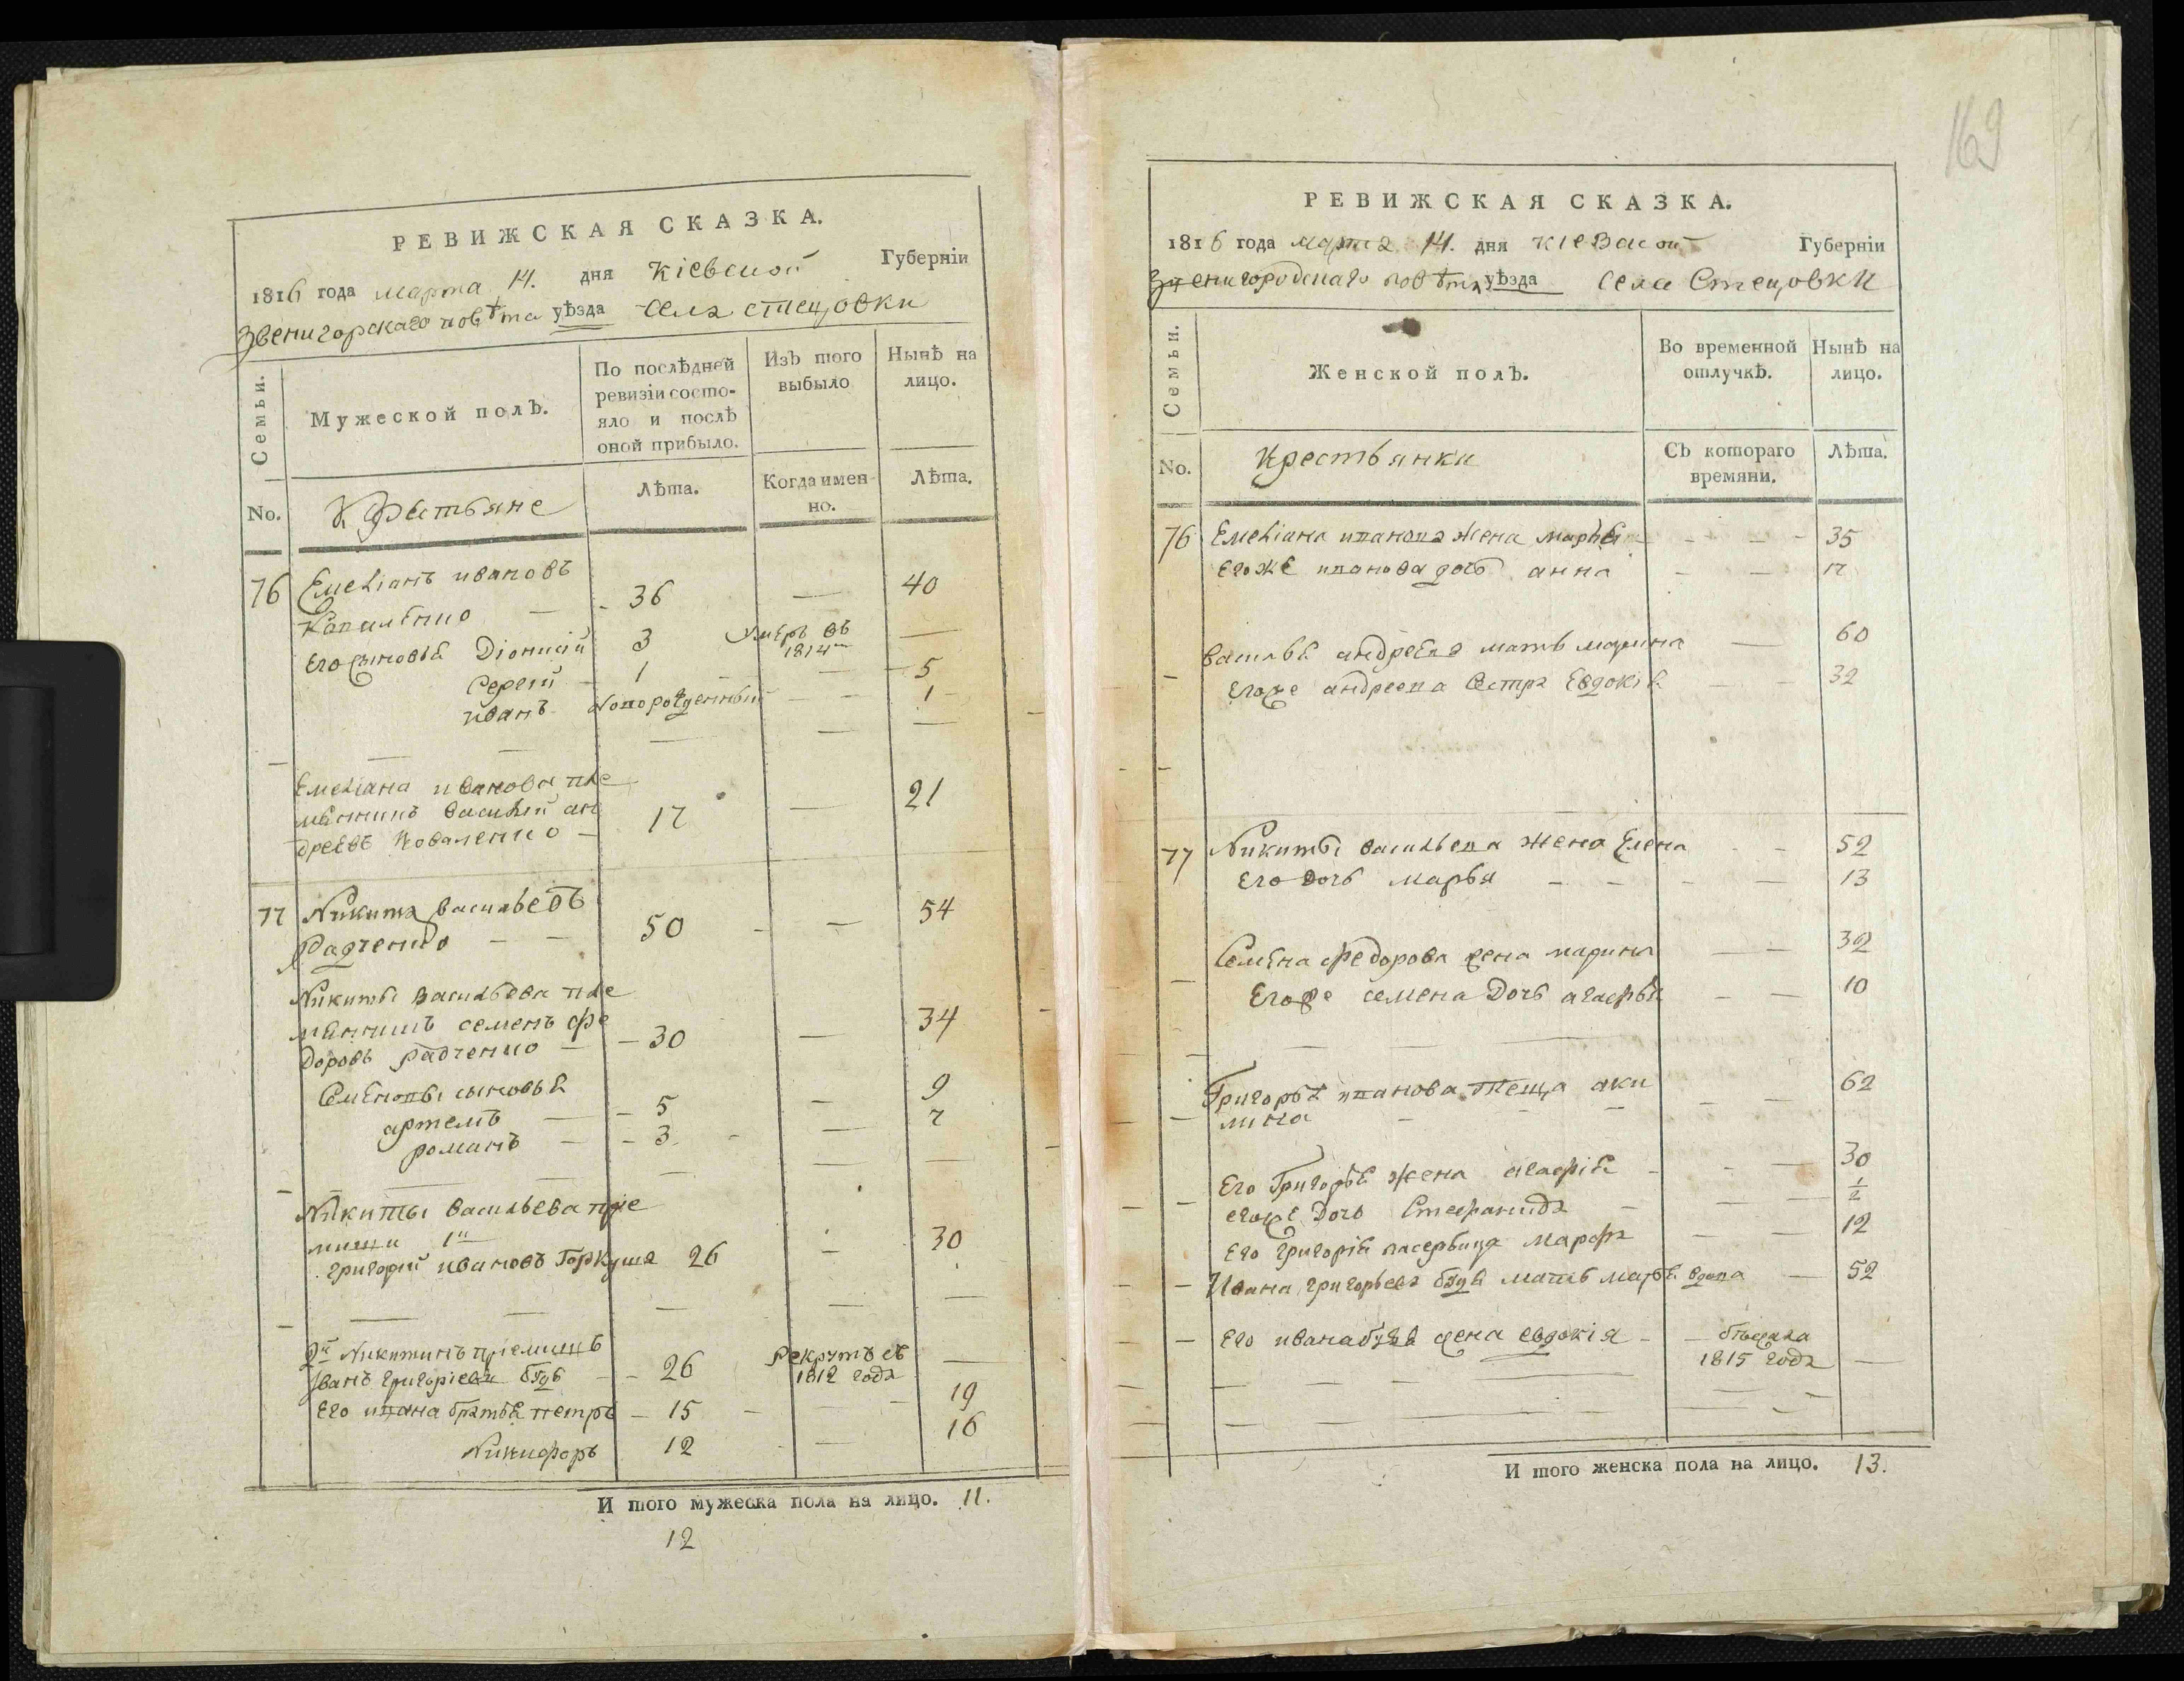 РЕВИЖСКАЯ СКАЗКА.
1816 года марта 14. дня Кіевской Губерніи
Звенигорскаго повѣта уѣзда села стецовки
Семьи.
Мужеской полъ.
По послѣдней ревизіи состояло и послѣ оной прибыло.
Изъ того выбыло
Нынѣ на лицо.
No.
Крестьяне
Лѣта.
Когда именно.
Лѣта.
76 Емеліанъ ивановъ
Коваленко — - 36 — 40
Его сыновья Діонисій 3 умеръ въ 1814м —
Сергей - 1 — 5
иванъ новорожденный — 1
Емеліана иванова пле
мянникъ василей ан
дреевъ Коваленко — 17 — 21
77 Никита васильевъ
Радченко — — 50 - — 54
Никиты васильева пле
мянникъ семенъ фе
доровъ радченко — - 30 — 34
Семеновы сыновья
артемъ — - 5 — 9
романъ — - 3 - — 7
Никиты васильева прие
мыши 1й
григорий ивановъ Горкуша 26 — 30
2й Никитинъ приемышъ
Иванъ григоріевъ - - 26 рекрутъ съ 1812 года —
Его ивана братья петръ - 15 - - 19
Никифоръ 12 — 16
И того мужеска пола на лицо. 11.
12
169
РЕВИЖСКАЯ СКАЗКА.
1816 года марта 14. дня кіевской Губерніи
Звенигородскаго повѣта уѣзда села Стецовки
Семьи.
Женской полъ.
Во временной отлучкѣ.
Нынѣ на лицо.
No.
Крестьянки
Съ котораго времяни.
Лѣта.
76 Емеліана иванова жена марья - — - 35
Егоже иванова дочь анна - — 17
василья андреева мать марина — 60
Егоже андреева сестра Евдокія - — 32
77 Никиты васильева жена Елена - - 52
Его дочь марья — - - — 13
Семена федорова жена марина — 32
Егоже семена дочь агафья - — 10
Григорья иванова теща аки
лина - — - — 62
Его Григорья жена агафія - - — 30
егоже дочь Стефанида — 1/2
Его григорія пасербица марфа - — 12
Ивана григорьева мать марья вдова — 52
Его ивана жена евдокія - — бѣжала
1815 года —
И того женска пола на лицо. 13.